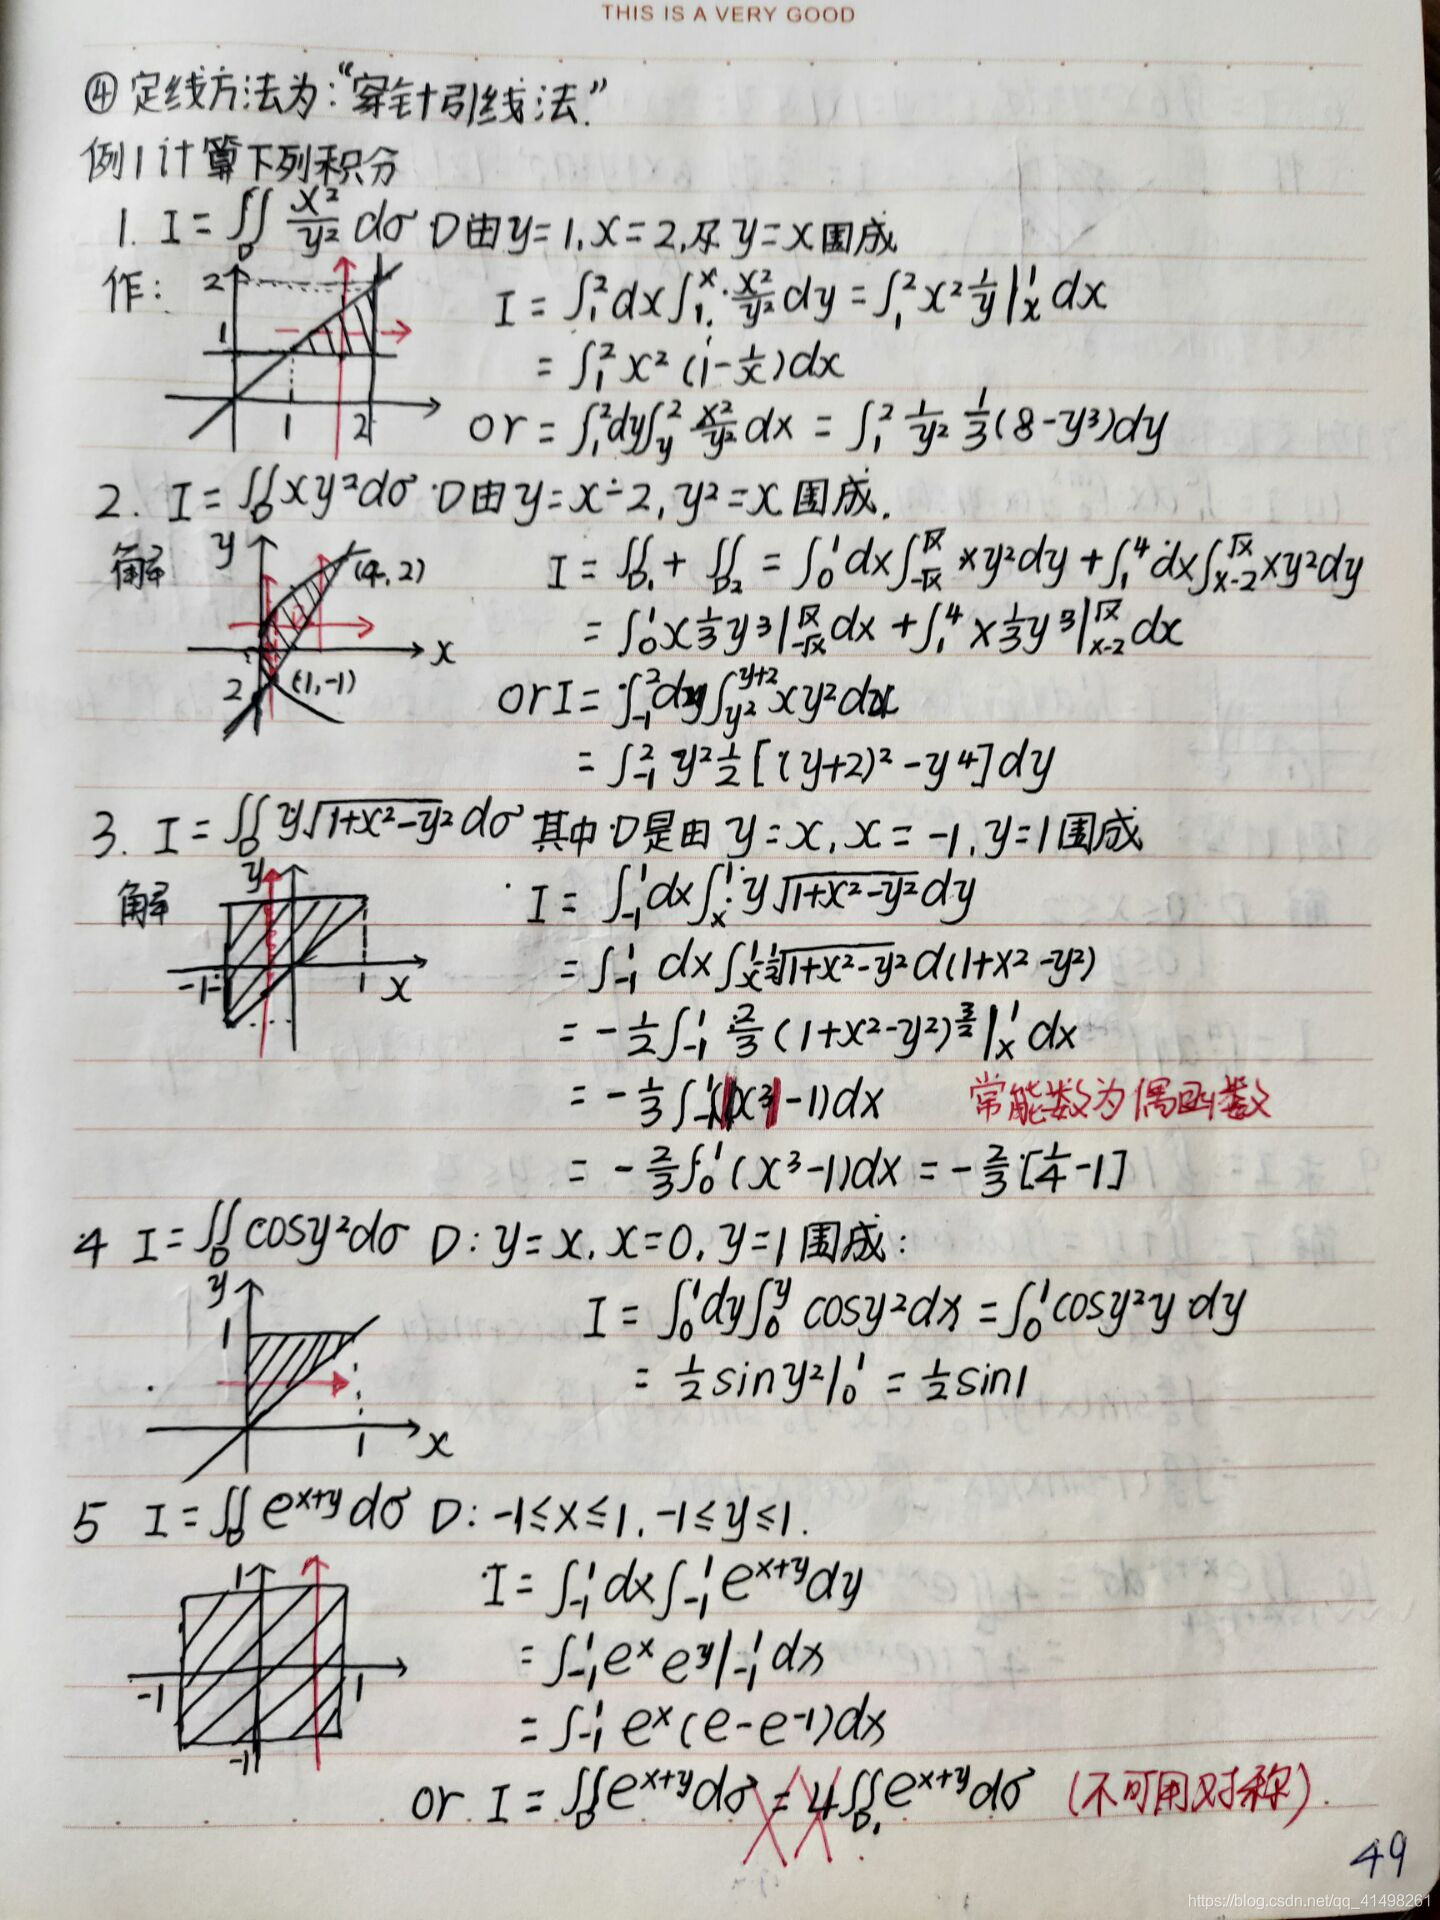 THIS IS A VERY GOOD
④ 定线方法为:“穿针引线法.”
例1 计算下列积分
1. I = ∬_D x²/y² dσ D由y=1, x=2, 及 y=x 围成
作:
2
1
1 2
I = ∫₁² dx ∫₁ˣ x²/y² dy = ∫₁² x² 1/y |ₓ¹ dx
= ∫₁² x² (1 - 1/x) dx
or = ∫₁² dy ∫_y² x²/y² dx = ∫₁² 1/y² 1/3 (8-y³) dy
2. I = ∬_D xy² dσ D由 y=x-2, y²=x 围成.
解
y
(4,2)
x
(1,-1)
2
I = ∬_D₁ + ∬_D₂ = ∫₀¹ dx ∫_{-√x}^{√x} xy² dy + ∫₁⁴ dx ∫_{x-2}^{√x} xy² dy
= ∫₀¹ x 1/3 y³ |_{-√x}^{√x} dx + ∫₁⁴ x 1/3 y³ |_{x-2}^{√x} dx
or I = ∫₋₁² dy ∫_{y²}^{y+2} xy² dx
= ∫₋₁² y² 1/2 [(y+2)² - y⁴] dy
3. I = ∬_D y√(1+x²-y²) dσ 其中D是由 y=x, x=-1, y=1围成
解
y
-1
1 x
I = ∫₋₁¹ dx ∫ₓ¹ y√(1+x²-y²) dy
= ∫₋₁¹ dx ∫ₓ¹ -1/2 √(1+x²-y²) d(1+x²-y²)
= -1/2 ∫₋₁¹ 2/3 (1+x²-y²)^{3/2} |ₓ¹ dx
= -1/3 ∫₋₁¹ (|x³| -1) dx 常能数为偶函数
= -2/3 ∫₀¹ (x³-1) dx = -2/3 [1/4 -1]
4 I = ∬_D cosy² dσ D: y=x, x=0, y=1围成:
y
1
1 x
I = ∫₀¹ dy ∫₀^y cosy² dx = ∫₀¹ cosy² y dy
= 1/2 siny² |₀¹ = 1/2 sin1
5 I = ∬_D e^{x+y} dσ D: -1≤x≤1, -1≤y≤1.
1
-1 1
-1
I = ∫₋₁¹ dx ∫₋₁¹ e^{x+y} dy
= ∫₋₁¹ eˣ e^y |₋₁¹ dx
= ∫₋₁¹ eˣ (e-e⁻¹) dx
or I = ∬_D e^{x+y} dσ = 4∬_D₁ e^{x+y} dσ (不可用对称).
49
https://blog.csdn.net/qq_41498261